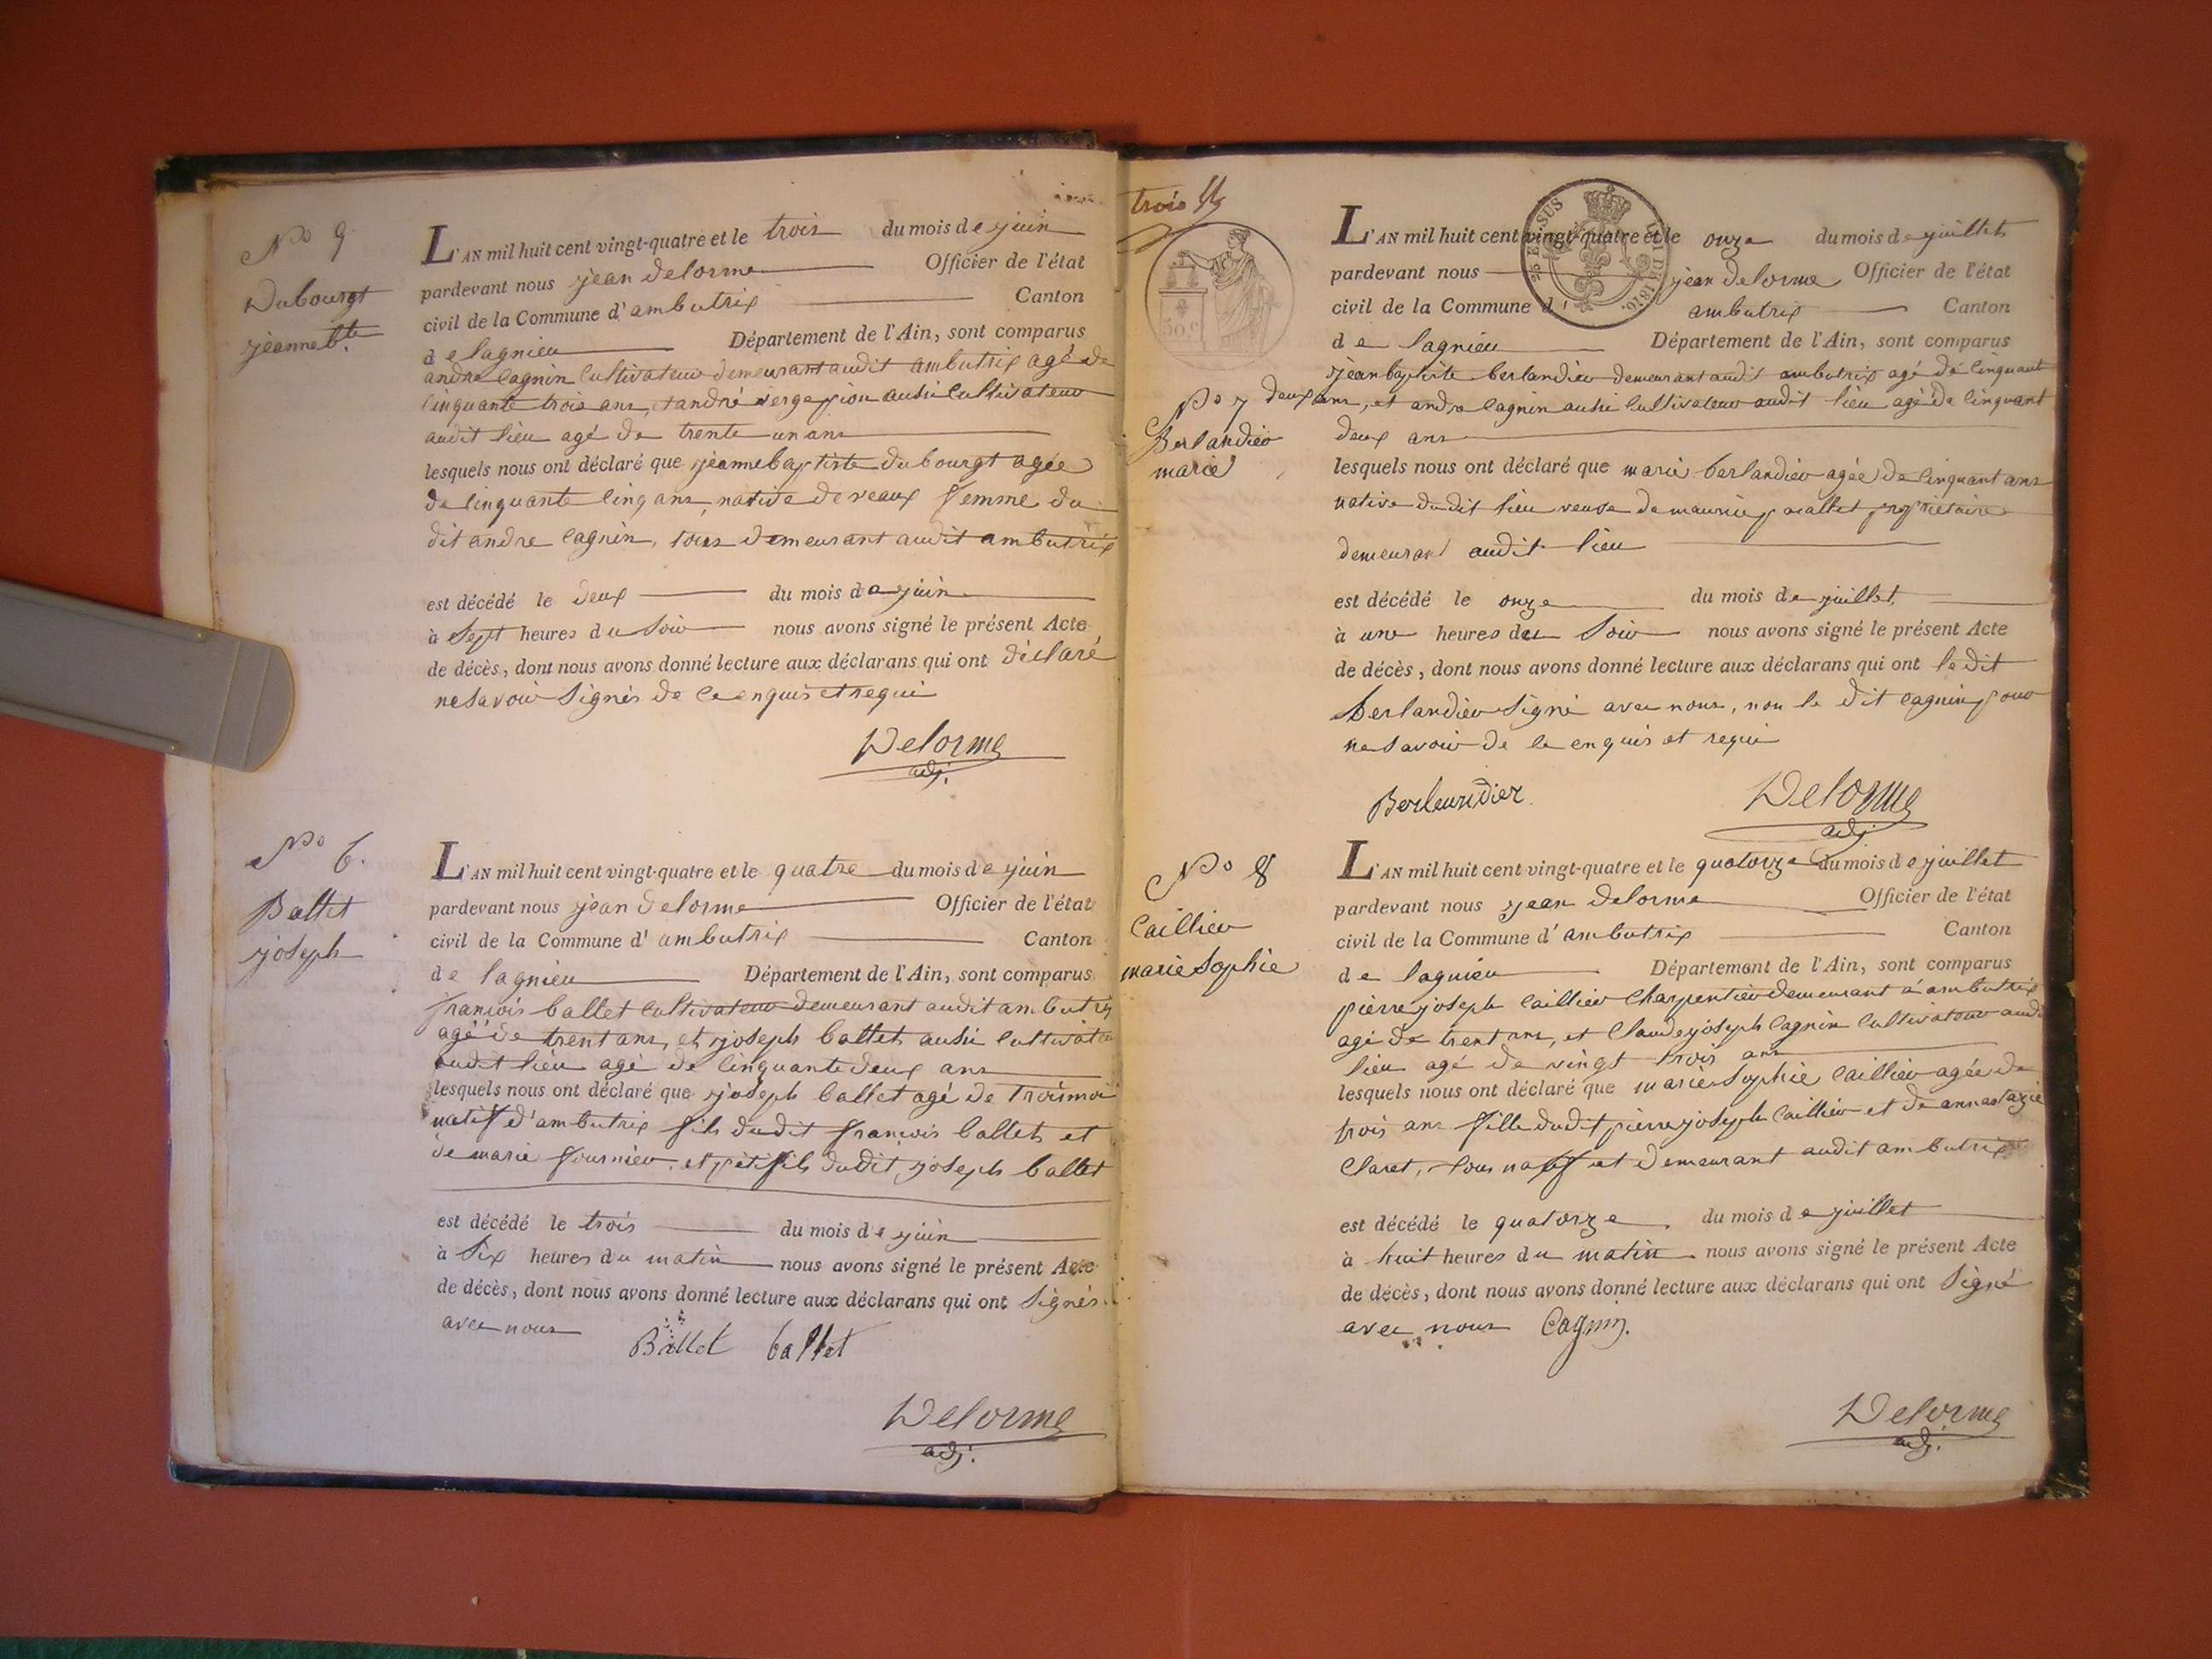 No 9
Dubourgt
jeanne bte.
L'AN mil huit cent vingt-quatre et le trois du mois de juin
pardevant nous jean delorme Officier de l'état
civil de la Commune d'ambutrix Canton
de lagnieu Département de l'Ain, sont comparus
andre Cagnin Cultivateur demeurant audit ambutrix agé de
Cinquante trois ans, et andré aussi Cultivateur
audit lieu agé de trente un ans
lesquels nous ont déclaré que jeanne baptiste dubourgt agée
de Cinquante Cinq ans, native de veaux femme du
dit andre Cagnin, tous demeurant audit ambutrix
est décédé le deux du mois de juin
à Sept heures du Soir nous avons signé le présent Acte
de décès, dont nous avons donné lecture aux déclarans qui ont déclaré
ne Savoir Signés de Ce enquis et requi
Delorme
adj.
No 6.
Ballet
joseph
L'AN mil huit cent vingt-quatre et le quatre du mois de juin
pardevant nous jean delorme Officier de l'état
civil de la Commune d'ambutrix Canton
de lagnieu Département de l'Ain, sont comparus
françois ballet Cultivateur demeurant audit ambutrix
agé de trent ans, et joseph ballet aussi Cultivateu
audit lieu agé de Cinquante deux ans
lesquels nous ont déclaré que joseph ballet agé de trois moi
natif d'ambutrix fils dudit françois ballet et
de marie fournier, et petit fils dudit joseph ballet
est décédé le trois du mois de juin
à Six heures du matin nous avons signé le présent Acte
de décès, dont nous avons donné lecture aux déclarans qui ont Signés
avec nous Ballet ballet
Delorme
adj.
trois
50 C
No 7
Berlandier
marie
L'AN mil huit cent vingt-quatre et le onze du mois de juillet
pardevant nous jean delorme Officier de l'état
civil de la Commune d' ambutrix Canton
de lagnieu Département de l'Ain, sont comparus
jean baptiste berlandier demeurant audit ambutrix agé de Cinquant
deux ans, et andre Cagnin aussi Cultivateur audit lieu agé de Cinquant
deux ans
lesquels nous ont déclaré que marie berlandier agée de Cinquant ans
native dudit lieu veuve de maurice propriétaire
demeurant audit lieu
est décédé le onze du mois de juillet
à une heures du Soir nous avons signé le présent Acte
de décès, dont nous avons donné lecture aux déclarans qui ont le dit
berlandier Signé avec nous, non le dit Cagnin pour
ne Savoir de Ce enquis et requi
Berlandier Delorme
adj
No 8
Caillier
marie Sophie
L'AN mil huit cent vingt-quatre et le quatorze du mois de juillet
pardevant nous jean delorme Officier de l'état
civil de la Commune d'ambutrix Canton
de lagnieu Département de l'Ain, sont comparus
pierre joseph Caillier Charpentier demeurant a ambutrix
agé de trent ans, et Claude joseph Cagnin Cultivateur audit
lieu agé de vingt trois ans
lesquels nous ont déclaré que marie Sophie Caillier agée de
trois ans fille dudit pierre joseph Caillier et de annastazie
Claret, tous natif et demeurant audit ambutrix
est décédé le quatorze du mois de juillet
à huit heures du matin nous avons signé le présent Acte
de décès, dont nous avons donné lecture aux déclarans qui ont Signé
avec nous Cagnin.
Delorme
adj.